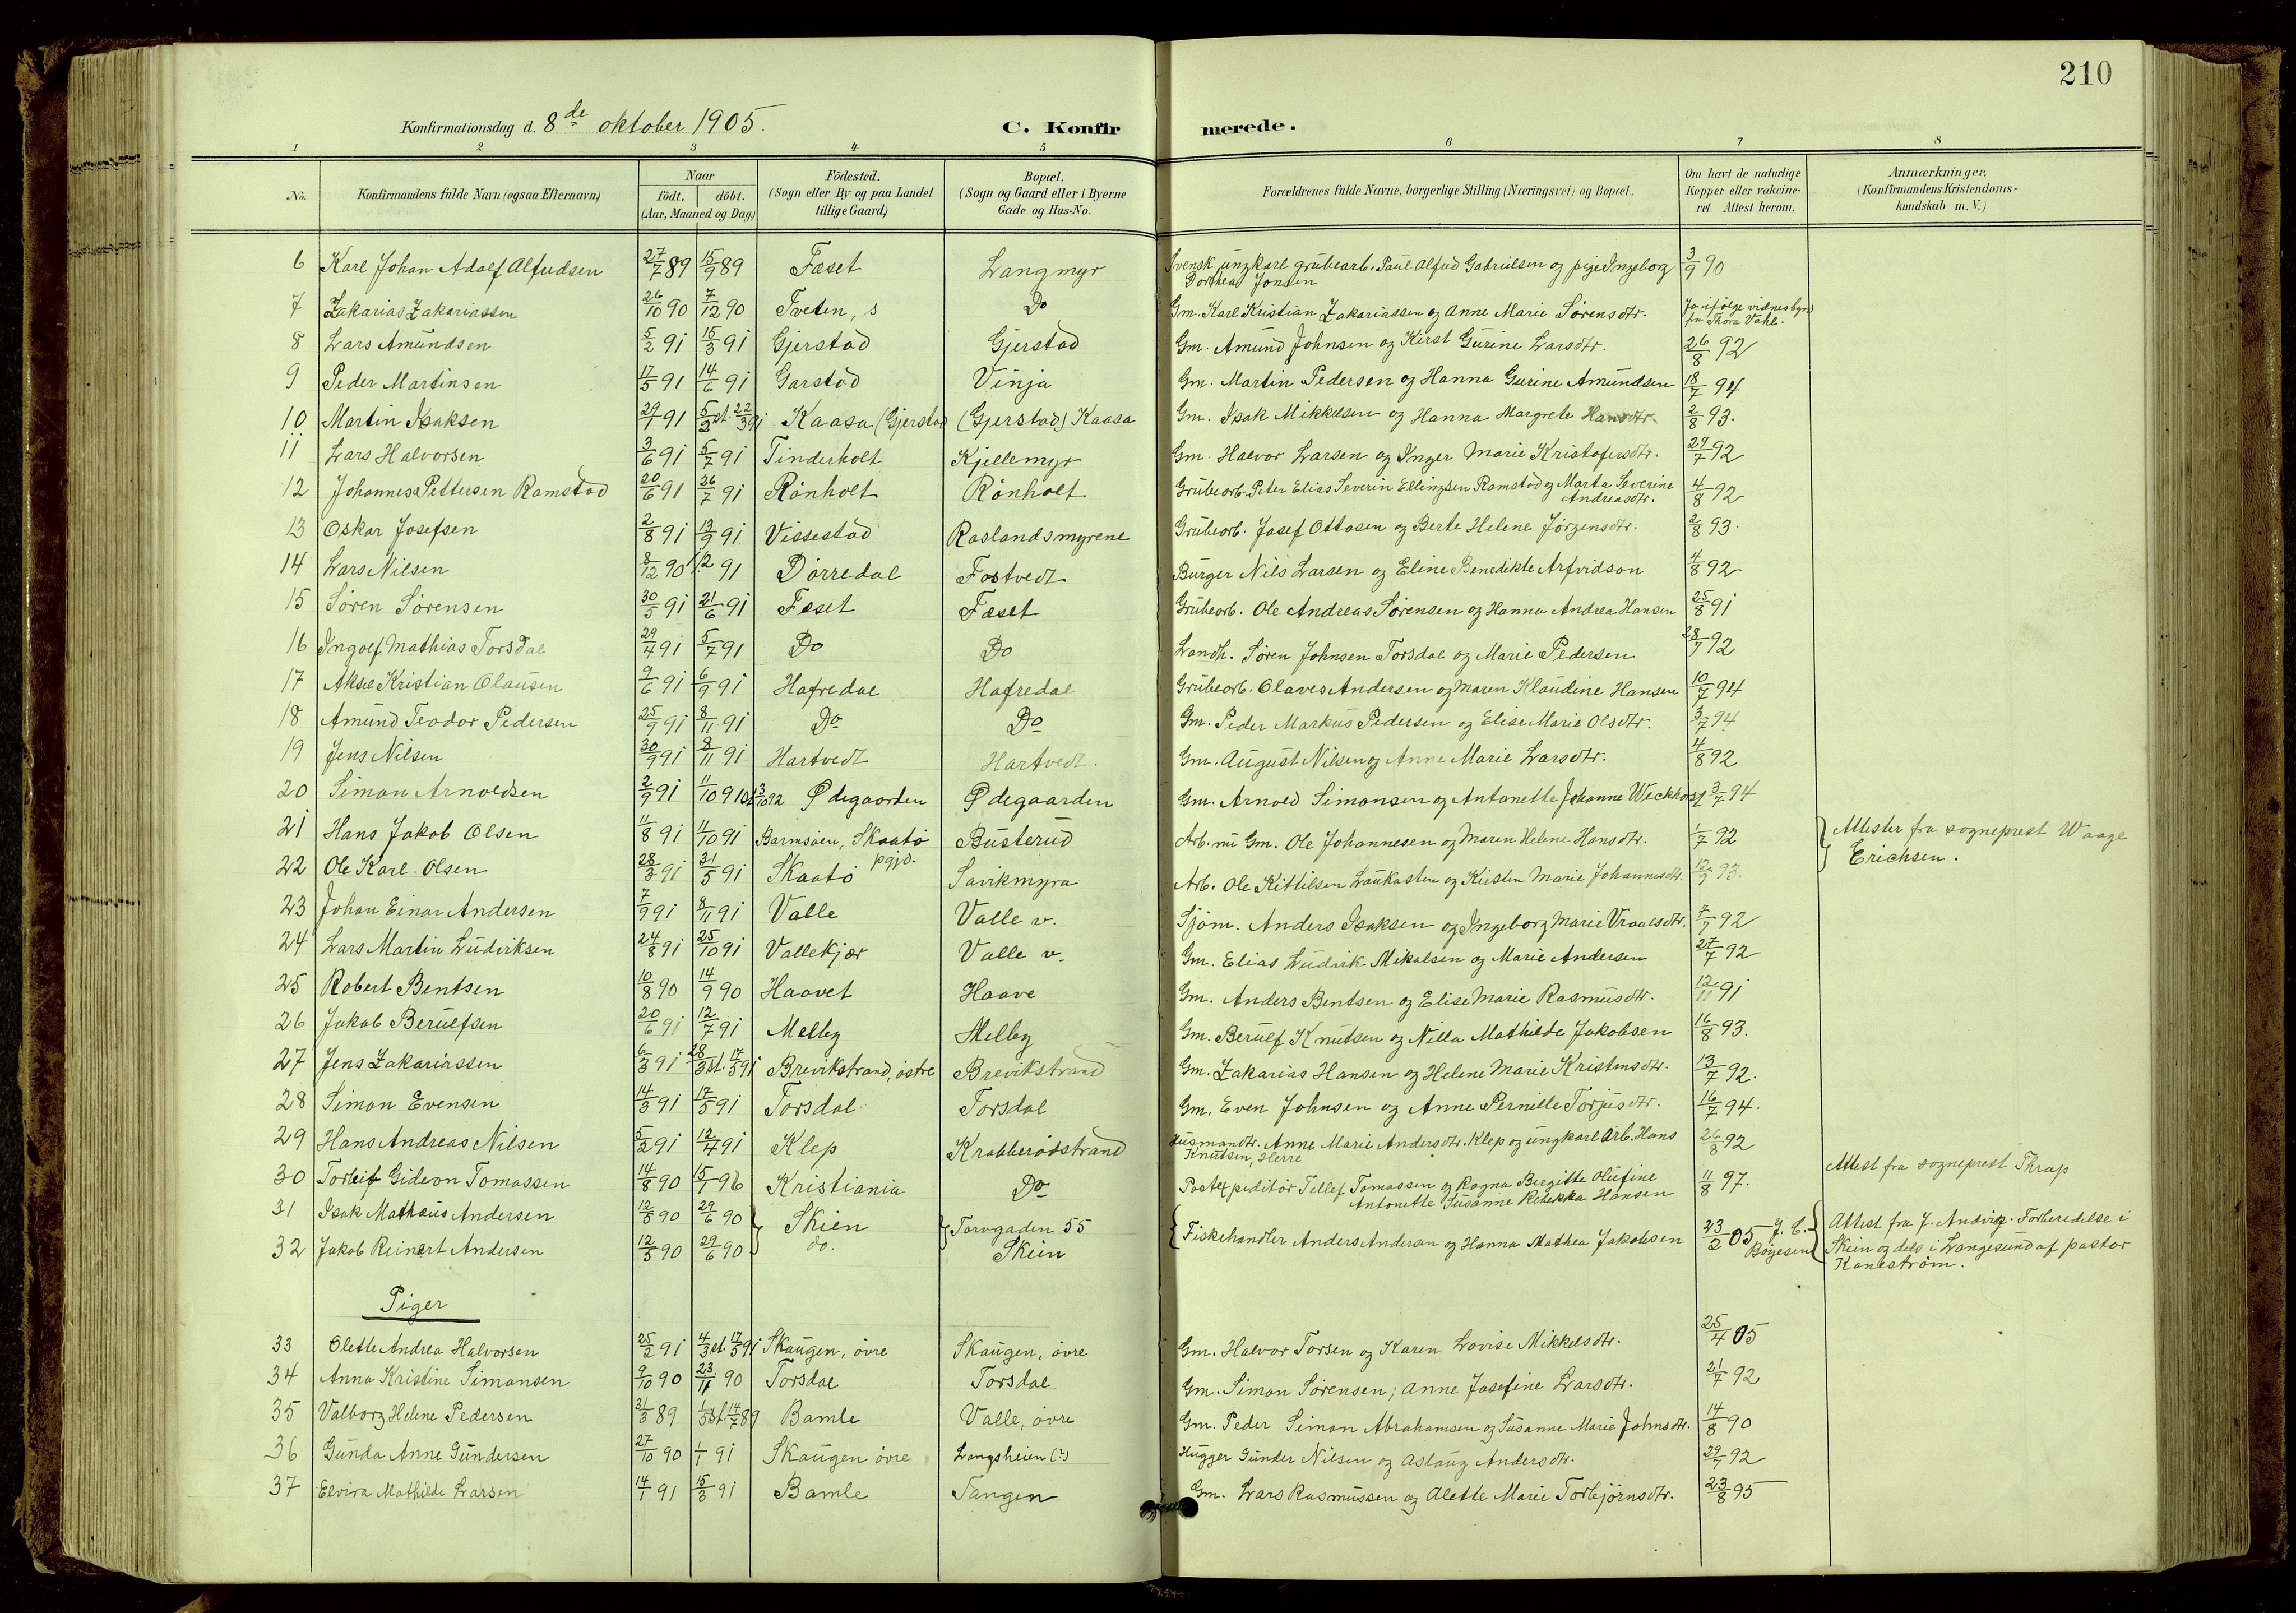 210
Konfirmationsdag d. 8de oktober 1905.
C. Konfirmerede.
1 2 3 4 5 6 7 8
No. Konfirmandens fulde Navn (ogsaa Efternavn) Naar födt. döbt. (Aar, Maaned og Dag) Födested. (Sogn eller By og paa Landet tillige Gaard) Bopæl. (Sogn og Gaard eller i Byerne Gade og Hus-No. Forældrenes fulde Navne, borgerlige Stilling (Næringsvei) og Bopæl. Om havt de naturlige Kopper eller vakcineret. Attest herom. Anmærkninger, (Konfirmandens Kristendomskundskab m. V.)
6 Karl Johan Adolf Alfredsen 27/7 89 15/9 89 Fæset Langmyr Svensk ungkarl grubearb. Paul Alfred Gabrielsen og pige Ingeborg Dorthea Jonsen 3/9 90
7 Zakarias Zakariassen 26/10 90 7/12 90 Tveten, s Do Gm. Karl Kristian Zakariassen og Anne Marie Sørensdtr. Ja ifølge vidnesbyrd fra Thora Vahl.
8 Lars Amundsen 5/2 91 15/3 91 Gjerstad Gjerstad Gm. Amund Johnsen og Kirst Gurine Larsdtr. 26/8 92
9 Peder Martinsen 17/5 91 14/6 91 Garstad Vinja Gm. Martin Pedersen og Hanna Gurine Amundsen 18/7 94
10 Martin Isaksen 29/1 91 5/2 st. 22/3 91 Kaasa (Gjerstad (Gjerstad) Kaasa Gm. Isak Mikkelsen og Hanna Margrete Hansdtr. 2/8 93.
11 Lars Halvorsen 3/6 91 5/7 91 Tinderholt Kjellemyr Gm. Halvor Larsen og Inger Marie Kristofersdtr. 29/7 92
12 Johannes Pettersen Ramstad 20/6 91 26/7 91 Rønholt Rønholt Grubearb. Peter Elias Severin Ellingsen Ramstad og Marta Severine Andreasdtr. 4/8 92
13 Oskar Josefsen 2/8 91 13/9 91 Vissestad Raslandsmyrene Grubearb. Josef Ottosen og Berte Helene Jørgensdtr. 2/8 93.
14 Lars Nilsen 8/12 90 1/2 91 Dørredal Fostvedt Burger Nils Larsen og Eline Benedikte Arfvidson 4/8 92
15 Søren Sørensen 30/5 91 21/6 91 Fæset Fæset Grubearb. Ole Andreas Sørensen og Hanna Andrea Hansen 25/8 91
16 Ingolf Mathias Torsdal 29/4 91 5/7 91 Do Do Landh. Søren Johnsen Torsdal og Marie Pedersen 28/7 92
17 Aksel Kristian Olausen 9/6 91 6/9 91 Hafredal Hafredal Grubearb. Olaves Andersen og Maren Klaudine Hansen 10/7 94
18 Amund Teodor Pedersen 25/9 91 8/11 91 Do Do Gm. Peder Markus Pedersen og Elise Marie Olsdtr. 3/7 94
19 Jens Nilsen 30/9 91 8/11 91 Hartvedt Hartvedt. Gm. August Nilsen og Anne Marie Larsdtr. 4/8 92
20 Simon Arnoldsen 2/9 91 11/10 91 st 3/10 92 Ødegaarden Ødegaarden Gm. Arnold Simonsen og Antonette Johanne Weckhorst 3/7 94
21 Hans Jakob Olsen 11/8 91 11/10 91 Barmsøen, Skaatø pgjd. Busterud Arb. nu Gm. Ole Johannesen og Maren Helene Hansdtr. 1/7 92 Attester fra sogneprest Waage Erichsen.
22 Ole Karl Olsen 28/3 91 31/5 91 Skaatø Savikmyra Arb. Ole Kittilsen Laukasten og Kirsten Marie Johannesdtr. 12/9 93.
23 Johan Einar Andersen 7/9 91 8/11 91 Valle Valle v. Sjøm. Anders Isaksen og Ingeborg Marie Vraalsdtr. 7/7 92
24 Lars Martin Ludviksen 24/8 91 25/10 91 Vallekjær Valle v. Gm. Elias Ludvik Mikalsen og Marie Andersen 27/7 92
25 Robert Bentsen 10/8 90 14/9 90 Haavet Haave Gm. Anders Bentsen og Elise Marie Rasmusdtr. 12/11 91
26 Jakob Berulfsen 20/6 91 12/7 91 Melby Melby Gm. Berulf Knutsen og Nilla Mathilde Jakobsen 16/8 93.
27 Jens Zakariassen 6/3 91 28/3 st. 17/5 91 Brevikstrand, østre Brevikstrand Gm. Zakarias Hansen og Helene Marie Kristensdtr. 13/7 92.
28 Simon Evensen 14/3 91 17/5 91 Torsdal Torsdal Gm. Even Johnsen og Anne Pernille Torjusdtr. 16/7 94.
29 Hans Andreas Nilsen 5/2 91 12/4 91 Klep Krabberødstrand Husmandtr. Anne Marie Andersdtr. Klep og ungkarl Arb. Hans Knutsen, Herre 26/8 92
30 Torleif Gideon Tomassen 14/8 90 15/1 96 Kristiania Do Postexpeditør Tellef Tomassen og Ragna Bergitte Olufine Antonette Susanne Rebekka Hansen 11/8 97. Attest fra sogneprest Thrap
31 Isak Mathæus Andersen 12/5 90 29/6 90 Skien Torvgaden 55 Fiskehandler Anders Andersen og Hanna Mathea Jakobsen 23/2 05 J. C. Børjesen Attest fra J. Andvig. Forberedelse i Skien og dels i Langesund af pastor Kaneström.
32 Jakob Reinert Andersen 12/5 90 29/6 90 do. Skien
Piger
33 Olette Andrea Halvorsen 25/2 91 4/3 st. 17/5 91 Skaugen, øvre Skaugen, øvre Gm. Halvor Torsen og Karen Lovise Mikkelsdtr. 25/4 05
34 Anna Kristine Simonsen 9/10 90 23/11 90 Torsdal Torsdal Gm. Simon Sørensen; Anne Josefine Larsdtr. 21/7 92
35 Valborg Helene Pedersen 31/3 89 1/5 st. 14/7 89 Bamle Valle, øvre Gm. Peder Simon Abrahamsen og Susanne Marie Johnsdtr. 14/8 90
36 Gunda Anne Gundersen 27/10 90 1/1 91 Skaugen øvre Langsheien (?) Hugger Gunder Nilsen og Aslaug Andersdtr. 29/7 92
37 Elvira Mathilde Larsen 14/1 91 15/3 91 Bamle Tangen Gm. Lars Rasmussen og Alette Marie Torbjørnsdtr. 23/8 95